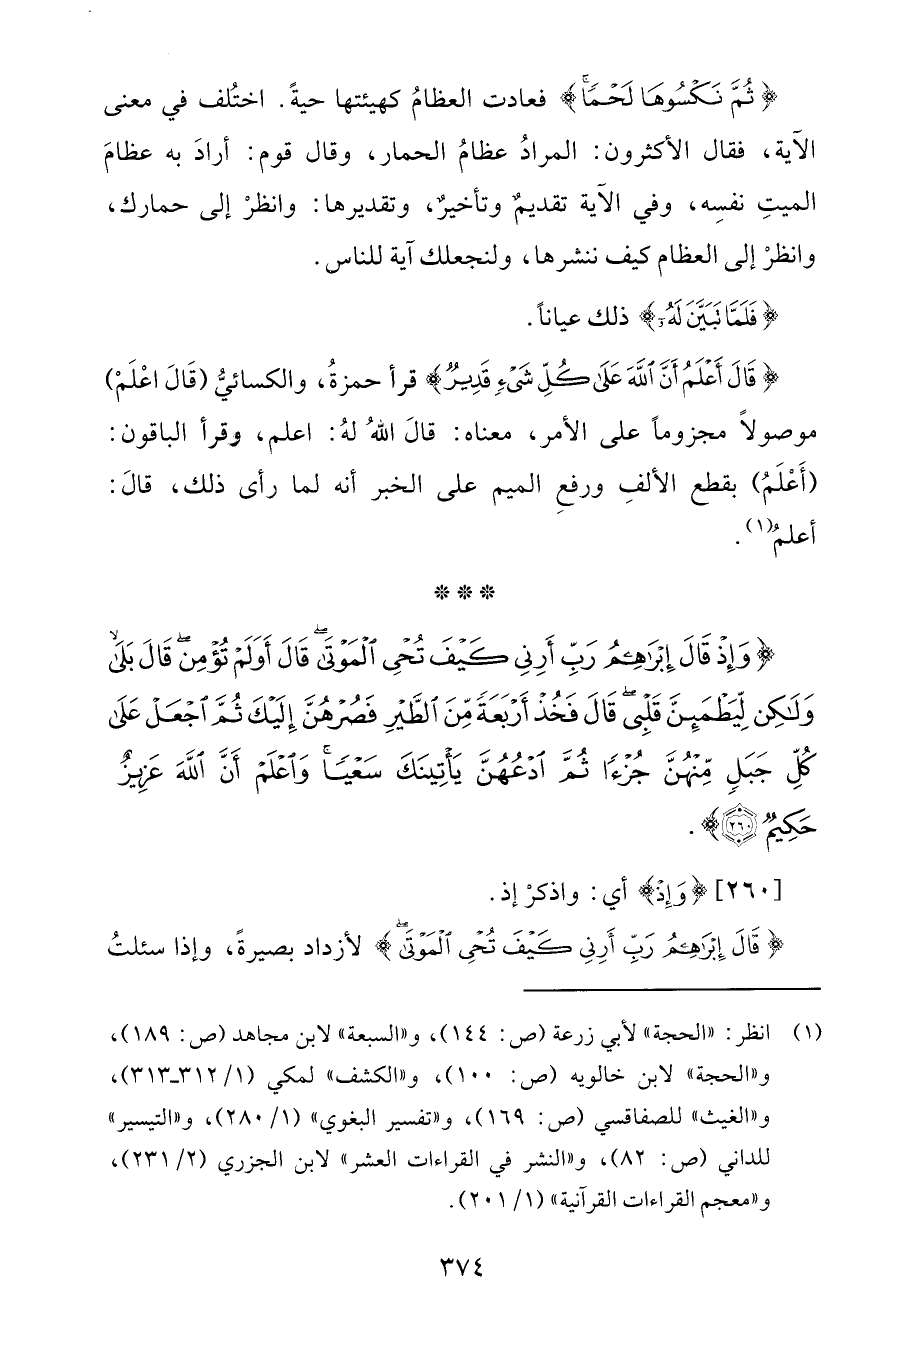 ﴿ثُمَّ نَكْسُوهَا لَحْمًا﴾ فعادت العظامُ كهيئتها حيةً. اختُلف في معنى
الآية، فقال الأكثرون: المرادُ عظامُ الحمار، وقال قوم: أرادَ به عظامَ
الميتِ نفسِه، وفي الآية تقديمٌ وتأخيرٌ، وتقديرها: وانظرْ إلى حمارك،
وانظرْ إلى العظام كيف ننشرها، ولنجعلك آية للناس.
﴿فَلَمَّا تَبَيَّنَ لَهُۥ﴾ ذلك عياناً.
﴿قَالَ أَعْلَمُ أَنَّ ٱللَّهَ عَلَىٰ كُلِّ شَىْءٍ قَدِيرٌ﴾ قرأ حمزةُ، والكسائيُّ (قَالَ اعْلَمْ)
موصولاً مجزوماً على الأمر، معناه: قالَ اللهُ لهُ: اعلم، وقرأ الباقون:
(أَعْلَمُ) بقطع الألفِ ورفعِ الميم على الخبر أنه لما رأى ذلك، قالَ:
أعلمُ(١).
* * *
﴿وَإِذْ قَالَ إِبْرَٰهِـۧمُ رَبِّ أَرِنِى كَيْفَ تُحْىِ ٱلْمَوْتَىٰ ۖ قَالَ أَوَلَمْ تُؤْمِن ۖ قَالَ بَلَىٰ
وَلَـٰكِن لِّيَطْمَئِنَّ قَلْبِى ۖ قَالَ فَخُذْ أَرْبَعَةً مِّنَ ٱلطَّيْرِ فَصُرْهُنَّ إِلَيْكَ ثُمَّ ٱجْعَلْ عَلَىٰ
كُلِّ جَبَلٍ مِّنْهُنَّ جُزْءًا ثُمَّ ٱدْعُهُنَّ يَأْتِينَكَ سَعْيًا ۚ وَٱعْلَمْ أَنَّ ٱللَّهَ عَزِيزٌ
حَكِيمٌ ٢٦٠﴾.
[٢٦٠] ﴿وَإِذْ﴾ أي: واذكرْ إذ.
﴿قَالَ إِبْرَٰهِـۧمُ رَبِّ أَرِنِى كَيْفَ تُحْىِ ٱلْمَوْتَىٰ ۖ﴾ لأزداد بصيرةً، وإذا سئلتُ
(١) انظر: «الحجة» لأبي زرعة (ص: ١٤٤)، و«السبعة» لابن مجاهد (ص: ١٨٩)،
و«الحجة» لابن خالويه (ص: ١٠٠)، و«الكشف» لمكي (١/ ٣١٢-٣١٣)،
و«الغيث» للصفاقسي (ص: ١٦٩)، و«تفسير البغوي» (١/ ٢٨٠)، و«التيسير»
للداني (ص: ٨٢)، و«النشر في القراءات العشر» لابن الجزري (٢/ ٢٣١)،
و«معجم القراءات القرآنية» (١/ ٢٠١).
٣٧٤